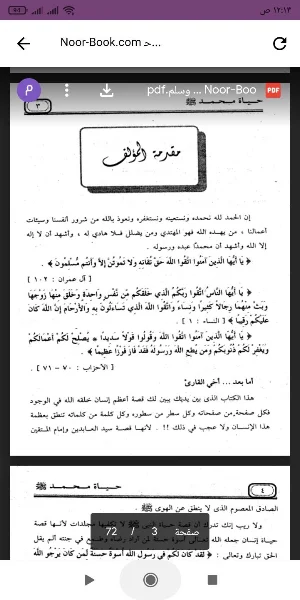 ١٢:١٣ ص
Noor-Book.com حـ...
Noor-Boo ... وسلم.pdf
PDF
P
حياة محمد ﷺ
٣
مقدمة المؤلف
إن الحمد لله نحمده ونستعينه ونستغفره ونعوذ بالله من شرور أنفسنا وسيئات
أعمالنا ، من يهده الله فهو المهتدي ومن يضلل فلا هادي له ، وأشهد أن لا إله
إلا الله وأشهد أن محمدًا عبده ورسوله .
﴿ يَا أَيُّهَا الَّذِينَ آمَنُوا اتَّقُوا اللَّهَ حَقَّ تُقَاتِهِ وَلَا تَمُوتُنَّ إِلَّا وَأَنتُم مُّسْلِمُونَ ﴾ .
[ آل عمران : ١٠٢ ]
﴿ يَا أَيُّهَا النَّاسُ اتَّقُوا رَبَّكُمُ الَّذِي خَلَقَكُم مِّن نَّفْسٍ وَاحِدَةٍ وَخَلَقَ مِنْهَا زَوْجَهَا
وَبَثَّ مِنْهُمَا رِجَالًا كَثِيرًا وَنِسَاءً وَاتَّقُوا اللَّهَ الَّذِي تَسَاءَلُونَ بِهِ وَالْأَرْحَامَ إِنَّ اللَّهَ كَانَ
عَلَيْكُمْ رَقِيبًا ﴾ [ النساء : ١ ] .
﴿ يَا أَيُّهَا الَّذِينَ آمَنُوا اتَّقُوا اللَّهَ وَقُولُوا قَوْلًا سَدِيدًا * يُصْلِحْ لَكُمْ أَعْمَالَكُمْ
وَيَغْفِرْ لَكُمْ ذُنُوبَكُمْ وَمَن يُطِعِ اللَّهَ وَرَسُولَهُ فَقَدْ فَازَ فَوْزًا عَظِيمًا ﴾ .
[ الأحزاب : ٧٠ - ٧١ ]
أما بعد ... أخي القارئ
هذا الكتاب الذي بين يديك يبين لك قصة أعظم إنسان خلقه الله في الوجود
فكل صفحة من صفحاته وكل سطر من سطوره وكل كلمة من كلماته تنطق بعظمة
هذا الإنسان ولا عجب في ذلك !! . لأنها قصة سيد العابدين وإمام المتقين
٤
حياة محمد ﷺ
الصادق المعصوم الذي لا ينطق عن الهوى ﷺ .
ولا ريب إنك تدرك أن قصة حياة النبي ﷺ لا تكفيها مجلدات لأنها قصة
حياة إنسان جعله الله تعالى أسوة حسنة لمن أراد رضاه وطمع في جنته ألم يقل
الحق تبارك وتعالى : ﴿ لَقَدْ كَانَ لَكُمْ فِي رَسُولِ اللَّهِ أُسْوَةٌ حَسَنَةٌ لِّمَن كَانَ يَرْجُو اللَّهَ
صفحة 3 / 72